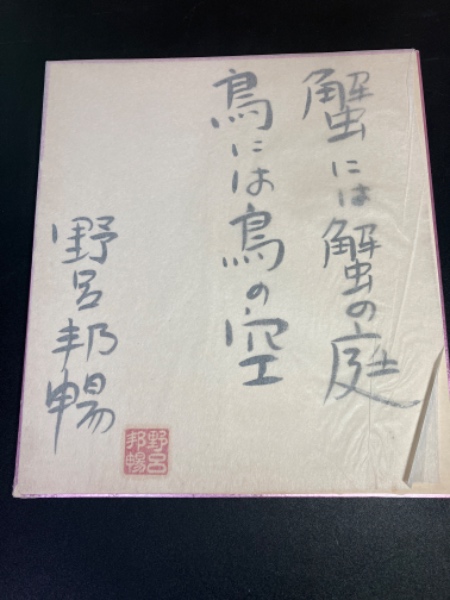 蟹には蟹の庭
鳥には鳥の空
野呂邦暢
野呂邦暢